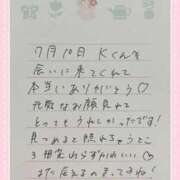 7月10日 Kくん
会いに来てくれて
本当にありがとう♡
元気なお顔見れて
とってもうれしかったです!
見つめると照れちゃうとこ
3 相変わらずかわいい♡
また会えるのまってるね!